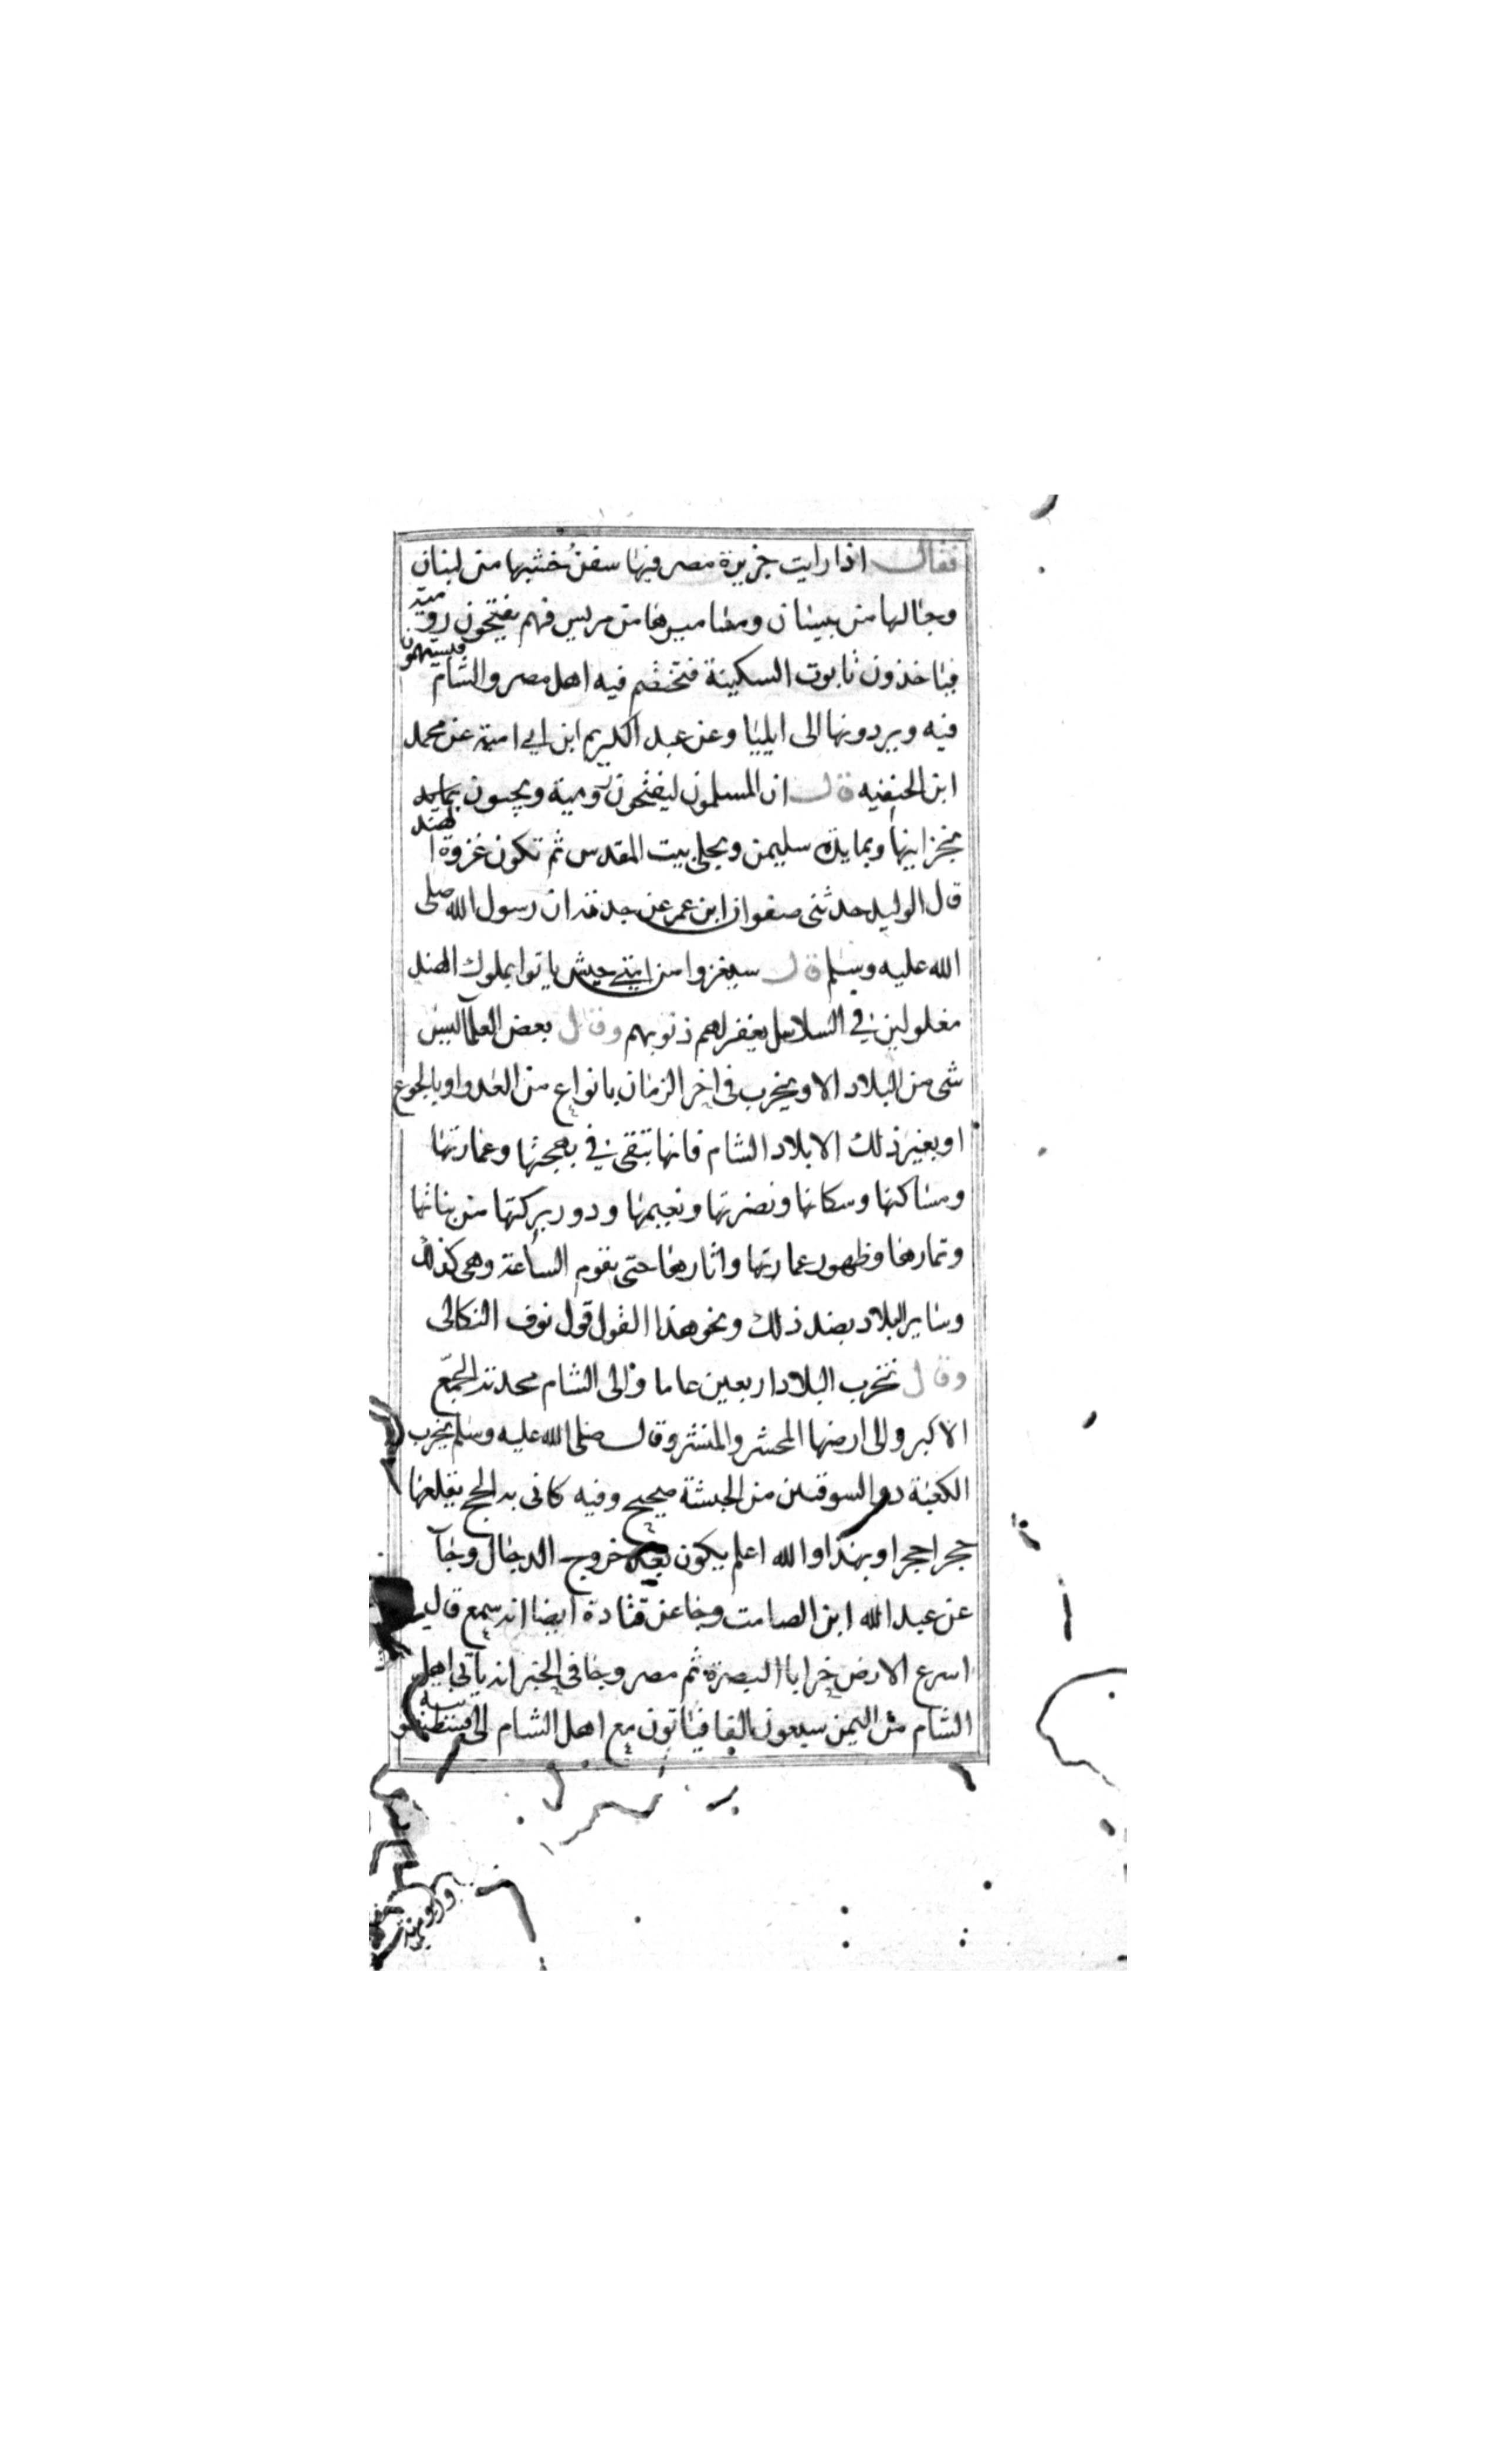 فقال اذا رايت جزيرة مصر فيها سفن خشبها من لبنان
وحبالها من بيسان ومساميرها من مريس فهم يفتحون رومية
فياخذون تابوت السكينة فتختصم فيه اهل مصر والشام فيستهمون
فيه ويردونها الى ايليا وعن عبد الكريم ابن ابي امية عن محمد
ابن الحنفيه قال ان المسلمون ليفتحون رومية ويجيون
وبمايدة سليمن وبحلي بيت المقدس ثم تكون غزوة الهند
قال الوليد حدثني صفوان ابن عمر عن جدته ان رسول الله صلى
الله عليه وسلم قال سيغزوا من امتي جيش ياتوا بملوك الهند
مغلولين في السلاسل يغفر لهم ذنوبهم وقال بعض العلمآ ليس
شي من البلاد الا ويخرب في اخر الزمان بانواع من العدو او بالجوع
او بغير ذلك الا بلاد الشام فانها تبقى في بهجتها وعمارتها
ومساكنها وسكانها ونضرتها ونعيمها ودور بركتها من نباتها
وثمارها وظهور عمارتها واثارها حتى تقوم الساعة وهي كذلك
وساير البلاد بضد ذلك ونحو هذا القول قول نوف النكالى
وقال تخرب البلاد اربعين عاما والى الشام الجمع
الاكبر والى ارضها المحشر والمنشر وقال صلى الله عليه وسلم يخرب
الكعبة ذو السوقتين من الحبشة صحيح وفيه كاني به الحج يقلعها
حجرا حجرا وبهذا والله اعلم يكون بعد خروج الدجال وجآ
عن عبد الله ابن الصامت وجا عن قتادة ايضا انه سمع قال
اسرع الارض خرابا البصرة ثم مصر وجا في الخبر انه ياتي اهل
الشام من اليمن سبعون الفا فياتون مع اهل الشام الى قسطنطينية